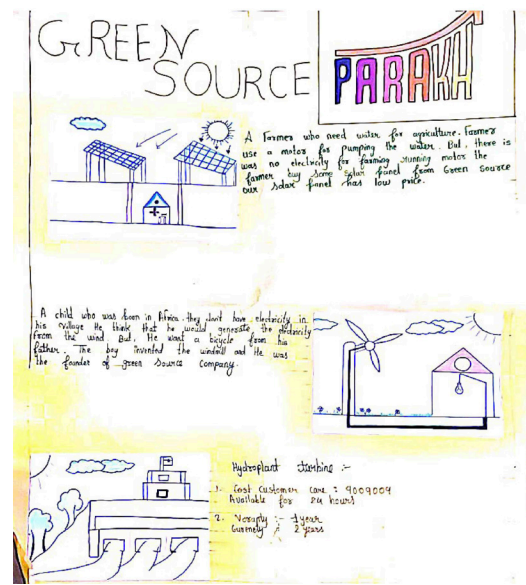 GREEN
SOURCE
PARAKH
A Farmer who need water for agriculture. Farmer
use a motor for pumping the water. But, there is
was no electricity for farming running motor the
farmer buy some solar panel from Green Source
our solar panel has low price.
A child who was born in Africa they don't have electricity in
his village He think that he would generate the electricity
from the wind. But, He want a bicycle from his
father. The boy invented the windmill and He was
the founder of green source company.
Hydroplant turbine :-
1. Cost Customer care : 9009009
Available for 24 hours
2. :- 1 year
:- 2 years